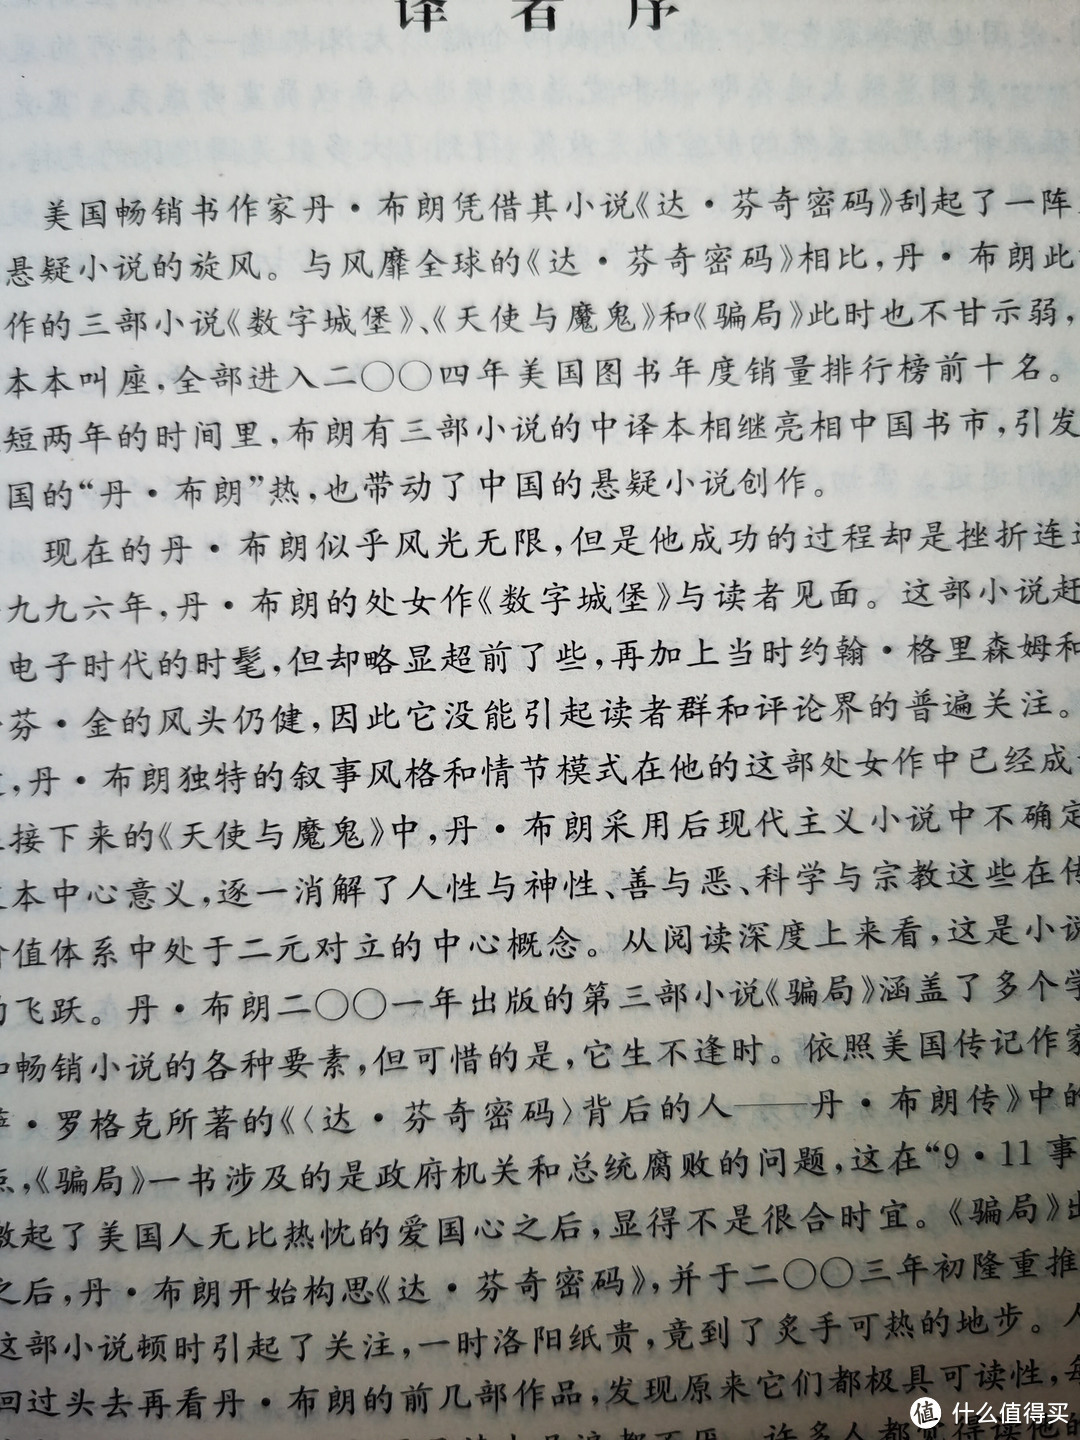 译者序
美国畅销书作家丹·布朗凭借其小说《达·芬奇密码》刮起了一阵
悬疑小说的旋风。与风靡全球的《达·芬奇密码》相比，丹·布朗此
作的三部小说《数字城堡》、《天使与魔鬼》和《骗局》此时也不甘示弱，
本本叫座，全部进入二〇〇四年美国图书年度销量排行榜前十名。
短两年的时间里，布朗有三部小说的中译本相继亮相中国书市，引发
国的“丹·布朗”热，也带动了中国的悬疑小说创作。
现在的丹·布朗似乎风光无限，但是他成功的过程却是挫折连连
九九六年，丹·布朗的处女作《数字城堡》与读者见面。这部小说赶
电子时代的时髦，但却略显超前了些，再加上当时约翰·格里森姆和
芬·金的风头仍健，因此它没能引起读者群和评论界的普遍关注。
，丹·布朗独特的叙事风格和情节模式在他的这部处女作中已经成
接下来的《天使与魔鬼》中，丹·布朗采用后现代主义小说中不确定
本中心意义，逐一消解了人性与神性、善与恶、科学与宗教这些在传
值体系中处于二元对立的中心概念。从阅读深度上来看，这是小说
的飞跃。丹·布朗二〇〇一年出版的第三部小说《骗局》涵盖了多个学
和畅销小说的各种要素，但可惜的是，它生不逢时。依照美国传记作家
·罗格克所著的《〈达·芬奇密码〉背后的人——丹·布朗传》中的
点，《骗局》一书涉及的是政府机关和总统腐败的问题，这在“9·11事
激起了美国人无比热忱的爱国心之后，显得不是很合时宜。《骗局》出
之后，丹·布朗开始构思《达·芬奇密码》，并于二〇〇三年初隆重推
这部小说顿时引起了关注，一时洛阳纸贵，竟到了炙手可热的地步。人
回过头去再看丹·布朗的前几部作品，发现原来它们都极具可读性，每
许多人都觉得读他的
值 什么值得买